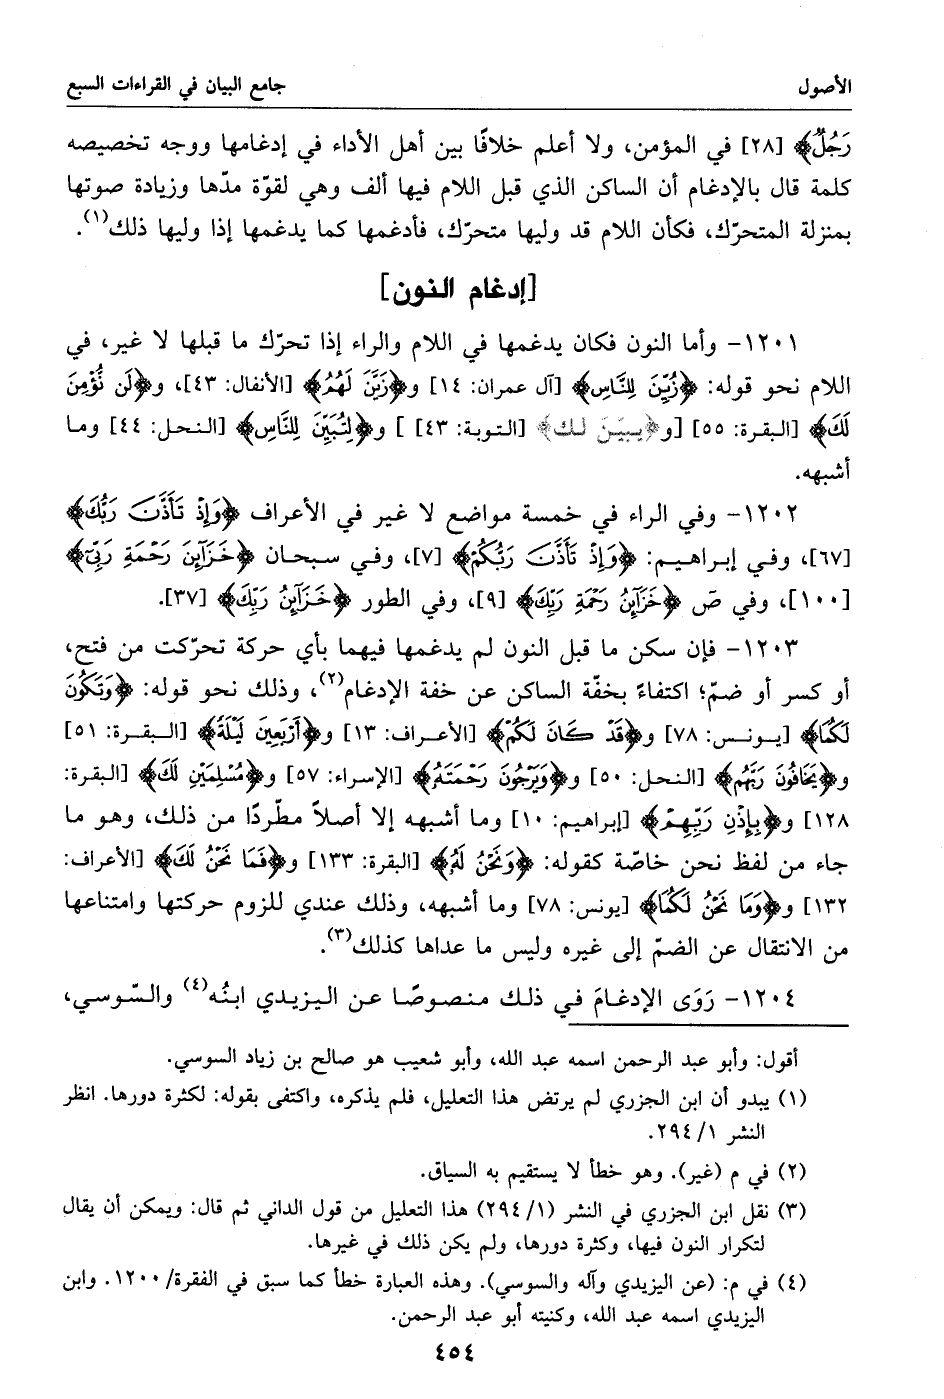 الأصول
جامع البيان في القراءات السبع
رَجُلٌ﴾ [٢٨] في المؤمن، ولا أعلم خلافًا بين أهل الأداء في إدغامها ووجه تخصيصه
كلمة قال بالإدغام أن الساكن الذي قبل اللام فيها ألف وهي لقوّة مدّها وزيادة صوتها
بمنزلة المتحرّك، فكأن اللام قد وليها متحرّك، فأدغمها كما يدغمها إذا وليها ذلك(١).
[إدغام النون]
١٢٠١- وأما النون فكان يدغمها في اللام والراء إذا تحرّك ما قبلها لا غير، في
اللام نحو قوله: ﴿زُيِّنَ لِلنَّاسِ﴾ [آل عمران: ١٤] و﴿زَيَّنَ لَهُمُ﴾ [الأنفال: ٤٣]، و﴿لَن نُّؤْمِنَ
لَكَ﴾ [البقرة: ٥٥] [و﴿يبيّنَ لك﴾ [التوبة: ٤٣] ] و﴿لِتُبَيِّنَ لِلنَّاسِ﴾ [النحل: ٤٤] وما
أشبهه.
١٢٠٢- وفي الراء في خمسة مواضع لا غير في الأعراف ﴿وَإِذْ تَأَذَّنَ رَبُّكَ﴾
[٦٧]، وفي إبراهيم: ﴿وَإِذْ تَأَذَّنَ رَبُّكُمْ﴾ [٧]، وفي سبحان ﴿خَزَآئِنَ رَحْمَةِ رَبِّىٓ﴾
[١٠٠]، وفي صَ ﴿خَزَآئِنُ رَحْمَةِ رَبِّكَ﴾ [٩]، وفي الطور ﴿خَزَآئِنُ رَبِّكَ﴾ [٣٧].
١٢٠٣- فإن سكن ما قبل النون لم يدغمها فيهما بأي حركة تحرّكت من فتح،
أو كسر أو ضمّ؛ اكتفاءً بخفّة الساكن عن خفة الإدغام(٢)، وذلك نحو قوله: ﴿وَتَكُونَ
لَكُمَا﴾ [يونس: ٧٨] و﴿قَدْ كَانَ لَكُمْ﴾ [الأعراف: ١٣] و﴿أَرْبَعِينَ لَيْلَةً﴾ [البقرة: ٥١]
و﴿يَخَافُونَ رَبَّهُم﴾ [النحل: ٥٠] و﴿وَيَرْجُونَ رَحْمَتَهُ﴾ [الإسراء: ٥٧] و﴿مُسْلِمَيْنِ لَكَ﴾ [البقرة:
١٢٨] و﴿بِإِذْنِ رَبِّهِمْ﴾ [إبراهيم: ١٠] وما أشبهه إلا أصلاً مطّردًا من ذلك، وهو ما
جاء من لفظ نحن خاصّة كقوله: ﴿وَنَحْنُ لَهُ﴾ [البقرة: ١٣٣] و﴿فَمَا نَحْنُ لَكَ﴾ [الأعراف:
١٣٢] و﴿وَمَا نَحْنُ لَكُمَا﴾ [يونس: ٧٨] وما أشبهه، وذلك عندي للزوم حركتها وامتناعها
من الانتقال عن الضمّ إلى غيره وليس ما عداها كذلك(٣).
١٢٠٤- رَوَى الإدغامَ في ذلك منصوصًا عن اليزيدي ابنُه(٤) والسّوسي،
أقول: وأبو عبد الرحمن اسمه عبد الله، وأبو شعيب هو صالح بن زياد السوسي.
(١) يبدو أن ابن الجزري لم يرتض هذا التعليل، فلم يذكره، واكتفى بقوله: لكثرة دورها. انظر
النشر ١/ ٢٩٤.
(٢) في م (غير). وهو خطأ لا يستقيم به السياق.
(٣) نقل ابن الجزري في النشر (١/ ٢٩٤) هذا التعليل من قول الداني ثم قال: ويمكن أن يقال
لتكرار النون فيها، وكثرة دورها، ولم يكن ذلك في غيرها.
(٤) في م: (عن اليزيدي وآله والسوسي). وهذه العبارة خطأ كما سبق في الفقرة/ ١٢٠٠. وابن
اليزيدي اسمه عبد الله، وكنيته أبو عبد الرحمن.
٤٥٤